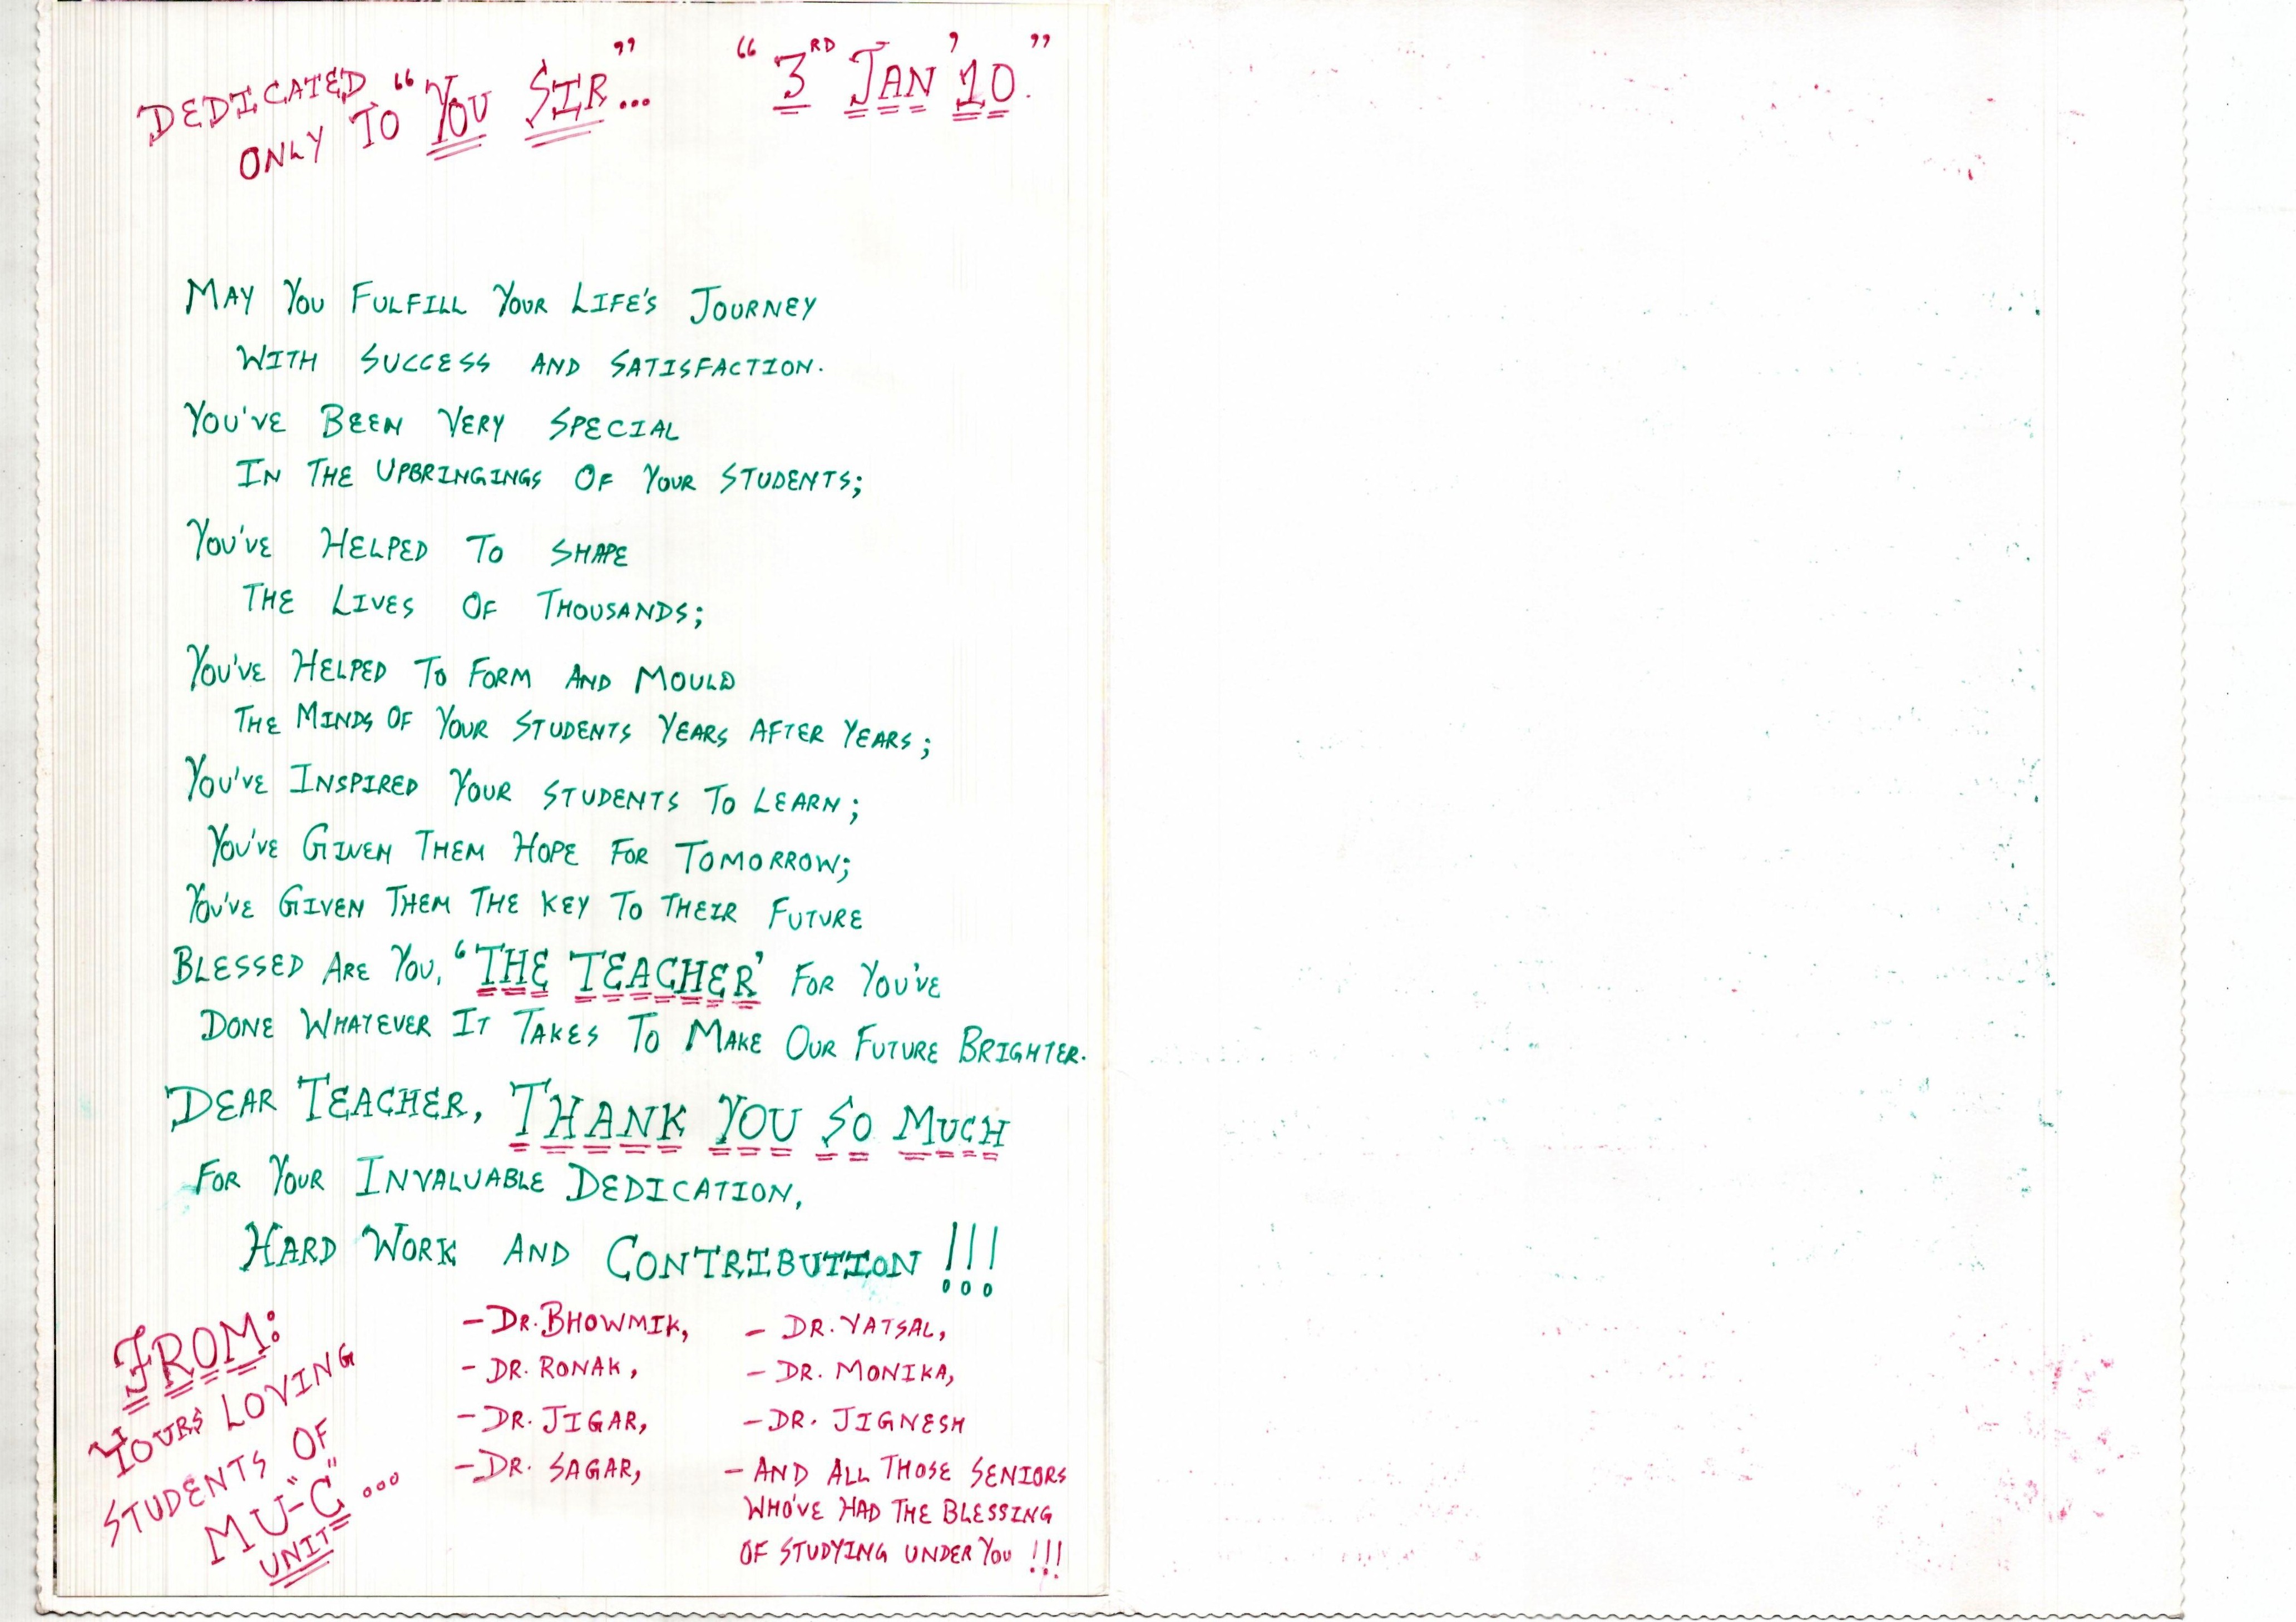 DEDICATED
ONLY TO "YOU SIR"...
"3RD JAN '10."
MAY YOU FULFILL YOUR LIFE'S JOURNEY
WITH SUCCESS AND SATISFACTION.
YOU'VE BEEN VERY SPECIAL
IN THE UPBRINGINGS OF YOUR STUDENTS;
YOU'VE HELPED TO SHAPE
THE LIVES OF THOUSANDS;
YOU'VE HELPED TO FORM AND MOULD
THE MINDS OF YOUR STUDENTS YEARS AFTER YEARS;
YOU'VE INSPIRED YOUR STUDENTS TO LEARN;
YOU'VE GIVEN THEM HOPE FOR TOMORROW;
YOU'VE GIVEN THEM THE KEY TO THEIR FUTURE
BLESSED ARE YOU, 'THE TEACHER' FOR YOU'VE
DONE WHATEVER IT TAKES TO MAKE OUR FUTURE BRIGHTER.
DEAR TEACHER, THANK YOU SO MUCH
FOR YOUR INVALUABLE DEDICATION,
HARD WORK AND CONTRIBUTION !!!
FROM:
YOURS LOVING
STUDENTS OF
MU-"C"...
UNIT
- DR. BHOWMIK,
- DR. RONAK,
- DR. JIGAR,
- DR. SAGAR,
- DR. VATSAL,
- DR. MONIKA,
- DR. JIGNESH
- AND ALL THOSE SENIORS
WHO'VE HAD THE BLESSING
OF STUDYING UNDER YOU !!!